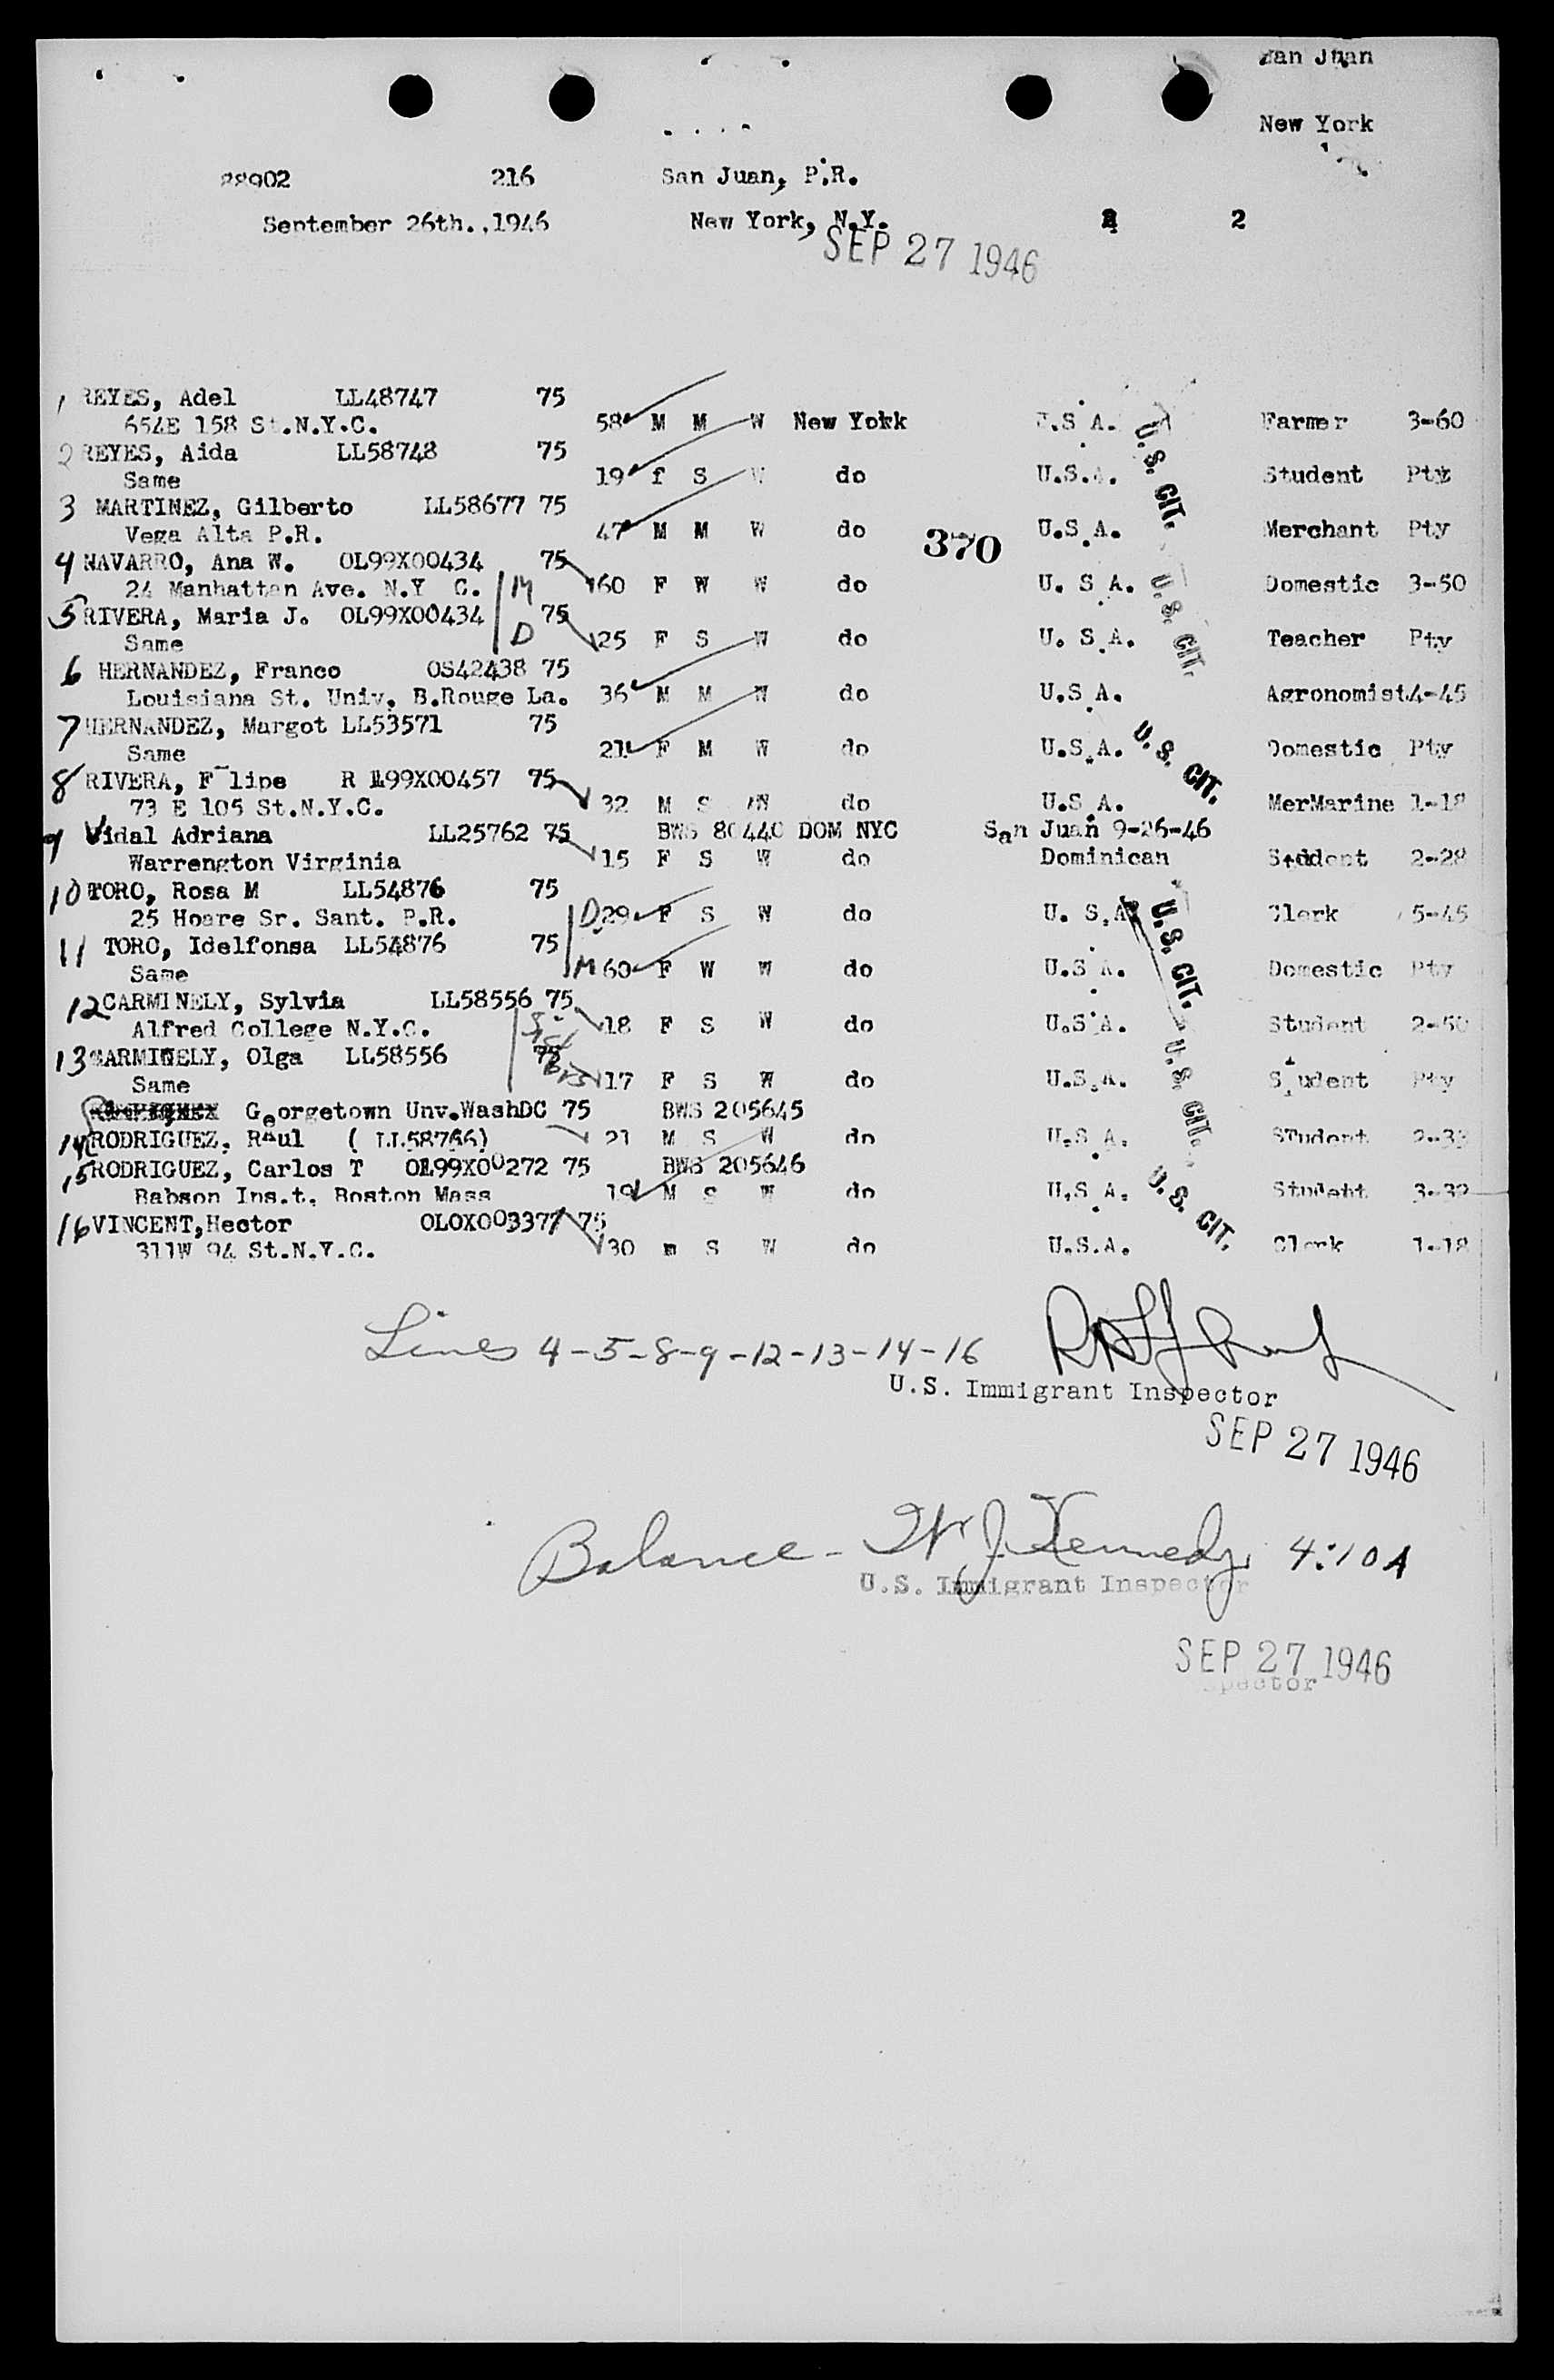 San Juan
New York
88902 216 San Juan, P.R.
September 26th.,1946 New York, N.Y. 2
SEP 27 1946
1 REYES, Adel LL48747 75
654E 158 St.N.Y.C. 58 M M W New York U.S A. Farmer 3-60
2 REYES, Aida LL58748 75
Same 19 f S W do U.S.A. Student Pty
3 MARTINEZ, Gilberto LL58677 75
Vega Alta P.R. 47 M M W do 370 U.S.A. Merchant Pty
4 NAVARRO, Ana W. OL99X00434 75
24 Manhattan Ave. N.Y C. M 60 F W W do U. S A. Domestic 3-50
5 RIVERA, Maria J. OL99X00434 75
Same D 25 F S W do U. S.A. Teacher Pty
6 HERNANDEZ, Franco OS42438 75
Louisiana St. Univ. B.Rouge La. 36 M M W do U.S A. Agronomist 4-45
7 HERNANDEZ, Margot LL53571 75
Same 21 F M W do U.S.A. Domestic Pty
8 RIVERA, F lipe R 99X00457 75
73 E 105 St.N.Y.C. 32 M S W do U.S A. MerMarine 1-18
9 Vidal Adriana LL25762 75 BWS 80440 DOM NYC San Juan 9-26-46
Warrengton Virginia 15 F S W do Dominican Stddent 2-28
10 TORO, Rosa M LL54876 75
25 Hoare Sr. Sant. P.R. D. 29 F S W do U. S.A Clerk 5-45
11 TORO, Idelfonsa LL54876 75
Same M 60 F W W do U.S A. Domestic Pty
12 CARMINELY, Sylvia LL58556 75
Alfred College N.Y.C. 18 F S W do U.S A. Student 2-50
13 CARMINELY, Olga LL58556 75
Same 17 F S W do U.S.A. Student Pty
Georgetown Unv.WashDC 75 BWS 205645
14 RODRIGUEZ, Raul ( LL58766) 21 M S W do U.S A. STudent 2-33
15 RODRIGUEZ, Carlos T OL99X00272 75 BWS 205646
Babson Ins.t. Boston Mass 19 M S W do U.S A. Student 3-32
16 VINCENT,Hector OLOX003377 75
311W 94 St.N.Y.C. 30 m S W do U.S.A. Clerk 1-18
U.S. CIT.
U.S. CIT.
U.S. CIT.
U.S. CIT.
U.S. CIT.
U.S. CIT.
Lines 4-5-8-9-12-13-14-16
U.S. Immigrant Inspector
SEP 27 1946
Balance - W J Kennedy 4:10A
U.S. Immigrant Inspector
SEP 27 1946
pector